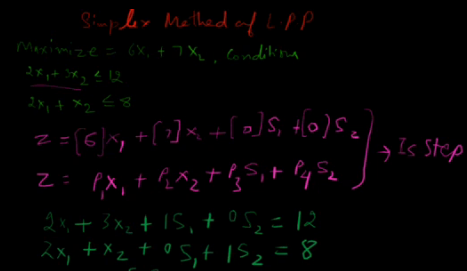 Simplex Method of L.P.P
Maximize = 6x₁ + 7x₂, Conditions
2x₁ + 3x₂ ≤ 12
2x₁ + x₂ ≤ 8
Z = [6]x₁ + [7]x₂ + [0]S₁ + [0]S₂
→ Is Step
Z = P₁x₁ + P₂x₂ + P₃S₁ + P₄S₂
2x₁ + 3x₂ + 1S₁ + 0S₂ = 12
2x₁ + x₂ + 0S₁ + 1S₂ = 8